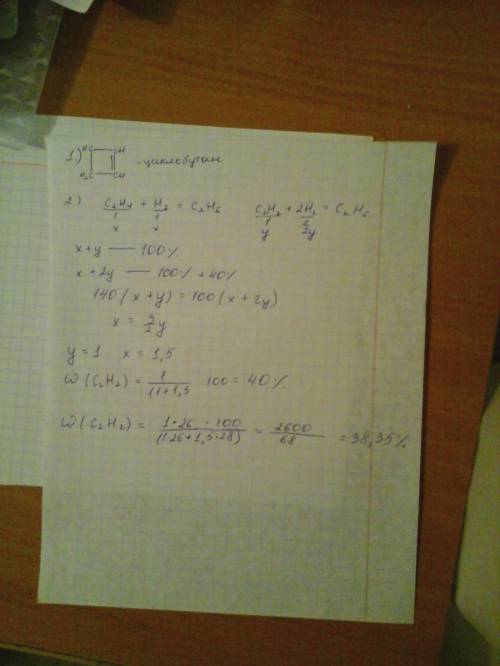 1) H₂C CH
H₂C CH - циклобутан
2) C₂H₄ + H₂ = C₂H₆ C₂H₂ + 2H₂ = C₂H₆
1 1 1 2
x x y 2y
x+y — 100%
x + 2y — 100% + 40%
140(x+y) = 100(x+2y)
x = 3/2 y
y = 1 x = 1,5
ω(C₂H₂) = 1/(1+1,5 100 = 40%
ω(C₂H₂) = 1·26 · 100/(1·26+1,5·28) = 2600/68 = 38,35%